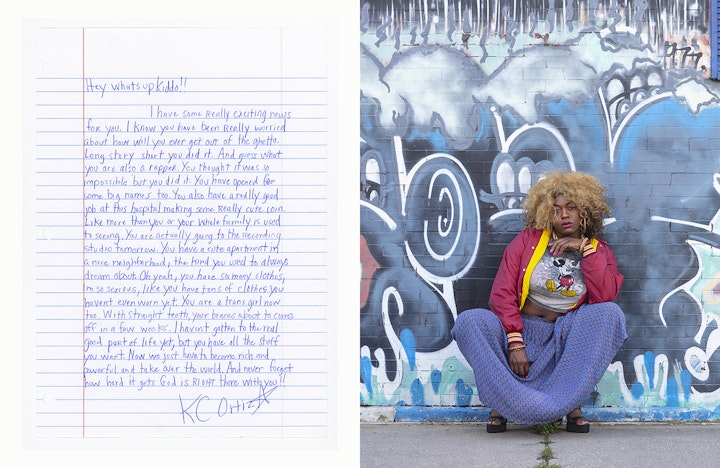 Hey whats up Kiddo!!
I have some Really exciting news
for you. I know you have been Really worried
about how will you ever get out of the ghetto.
Long story short you did it. And guess what
you are also a rapper. You thought it was so
impossible but you did it. You have opened for
some big names too. You also have a really good
job at this hospital making some Really cute coin.
Like more than you or your whole family is used
to seeing. You are actually going to the Recording
studio tomorrow. You have a cute apartment in
a nice neighborhood, the kind you used to always
dream about. Oh yeah, you have so many clothes,
im so serious, like you have tons of clothes you
havent even worn yet. You are a trans girl now
too. With straight teeth, your braces about to come
off in a few weeks. I havent gotten to the real
good part of life yet, but you have all the stuff
you want. Now we just have to become rich and
powerful and take over the world. And never forget
how hard it gets God is Right there with you!!
KC Ortiz